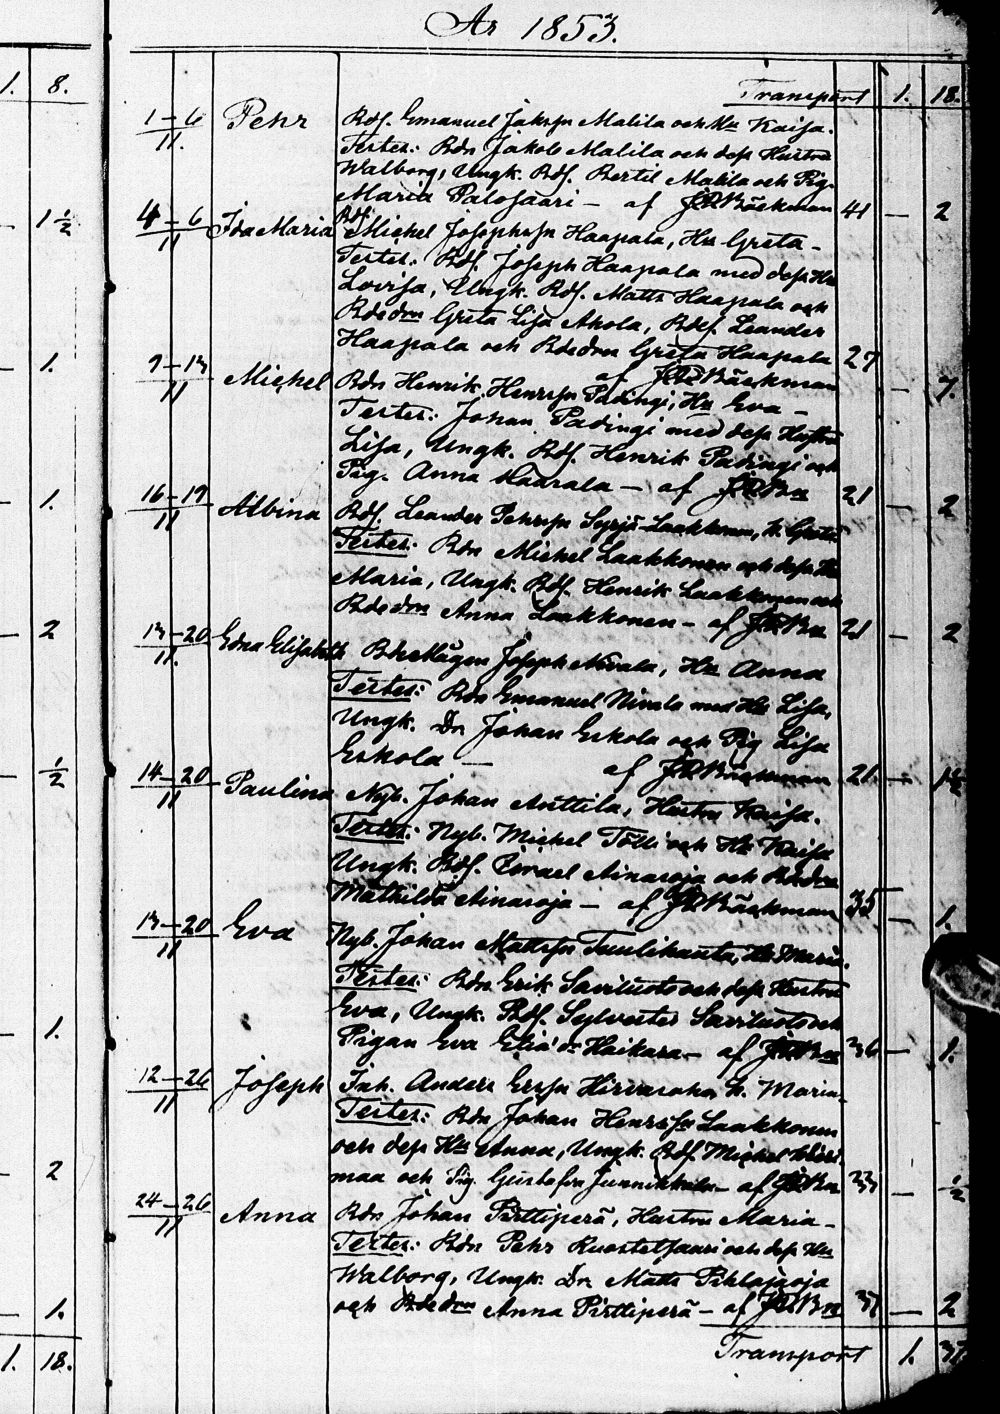 År 1853.
1. 8. Transport 1. 18.
1–6/11. Pehr Bds. Emanuel Jakssn Malila och Hu Kaisa.
Testes: Bdn Jakob Malila och dess Hustru
Walborg, Ungk. Bds. Bertil Malila och Pig.
Maria Palosaari – af Bäckman 41 — 2
1½ 4–6/11 Ida Maria Bds. Michel Josephssn Haapala, Hu Greta –
Testes: Bds. Joseph Haapala med dess Hu
Lovisa, Ungk. Bds. Matts Haapala och
Bdedrn Greta Lisa Ahola, Bds. Leander
Haapala och Bdedrn Greta Haapala 27
af Bäckman
1. 9–13/11 Michel Bdn Henrik Henrssn Padingi, Hu Eva – — 7.
Testes: Johan Padingi med dess Hustru
Lisa, Ungk. Bds. Henrik Padingi och
Pig. Anna Haarala – af 21
1. 16–19/11 Albina Bds. Leander Pehrssn Syrjä-Laakkonen, h. Greta — 2
Testes: Bdn Michel Laakkonen och dess Hu
Maria, Ungk. Bds. Henrik Laakkonen och
Bdedrn Anna Laakkonen – af 21 — 2
2 13–20/11. Edna Elisabeth Bdemågen Joseph Nivala, Hu Anna
Testes: Bdn Emanuel Nivala med Hu Lisa,
Ungk. Dr. Johan Eskola och Pig Lisa
Eskola — af Bäckman 21. — 1½
½ 14–20/11 Paulina Nyb. Johan Anttila, Hustru Kaisa.
Testes: Nyb. Michel Tölli och Hu Kaisa
Ungk. Bds. Israel Ainasoja och Bdedrn
Mathilda Ainasoja – af Bäckman 35 — 1.
13–20/11 Eva Nyb. Johan Mattssn Tuulikanta, Hu Maria.
Testes: Bdn Erik Saviluoto och dess Hustru
Eva, Ungk. Bds. Sylvester Saviluoto och
1. Pigan Eva Haikara – af 36 — 1.
12–26/11 Joseph Inh. Anders Erssn Hirvasoha h. Maria.
Testes: Bdn Johan Henrssn Laakkonen
och dess Hu Anna, Ungk. Bds. Michel
2 maa och Pig. Gustafva Junnikkala – af 33 — ½
24–26/11 Anna Bdn Johan Pirttiperä, Hustru Maria –
Testes: Bdn Pehr Ruostetsaari och dess Hu
Walborg, Ungk. Dr. Matts Pihlajasoja
1. och Bdedrn Anna Pirttiperä – af 37 — 2
1. 18. Transport 1. 37